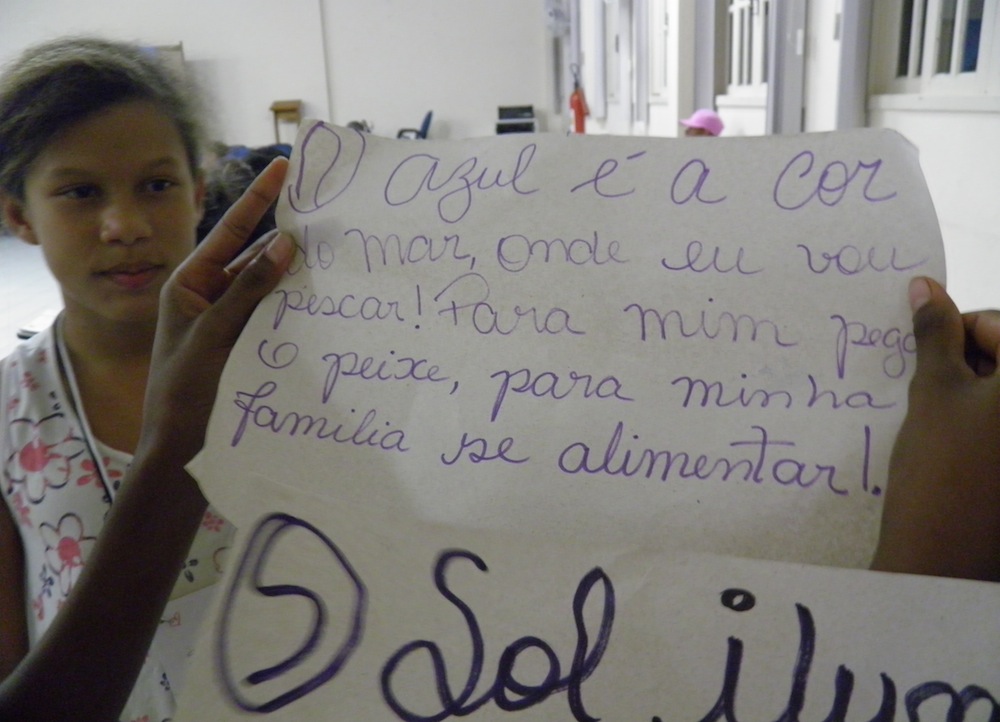 O azul é a cor
do mar, onde eu vou
pescar! Para mim pega
o peixe, para minha
familia se alimentar!.
O Sol ilum